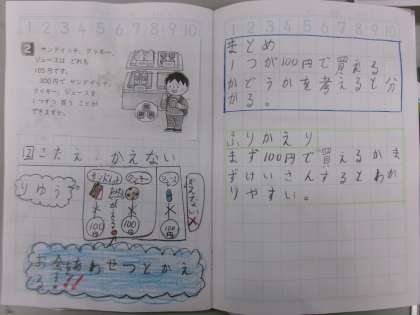 1 2 3 4 5 6 7 8 9 10
2
サンドイッチ、クッキー、
ジュースは どれも
105円です。
300円で サンドイッチ、
クッキー、ジュースを
1つずつ 買う ことが
できますか。
2 こたえ かえない
りゆう
サンドイッチ
クッキー
ジュース
かえない
100円
100円
100円
1 2 3 4 5 6 7 8 9 10
まとめ
1つが100円で買える
かどうかを考えると分
かる。
ふりかえり
まず100円で買えるかま
ずけいさんするとわか
りやすい。